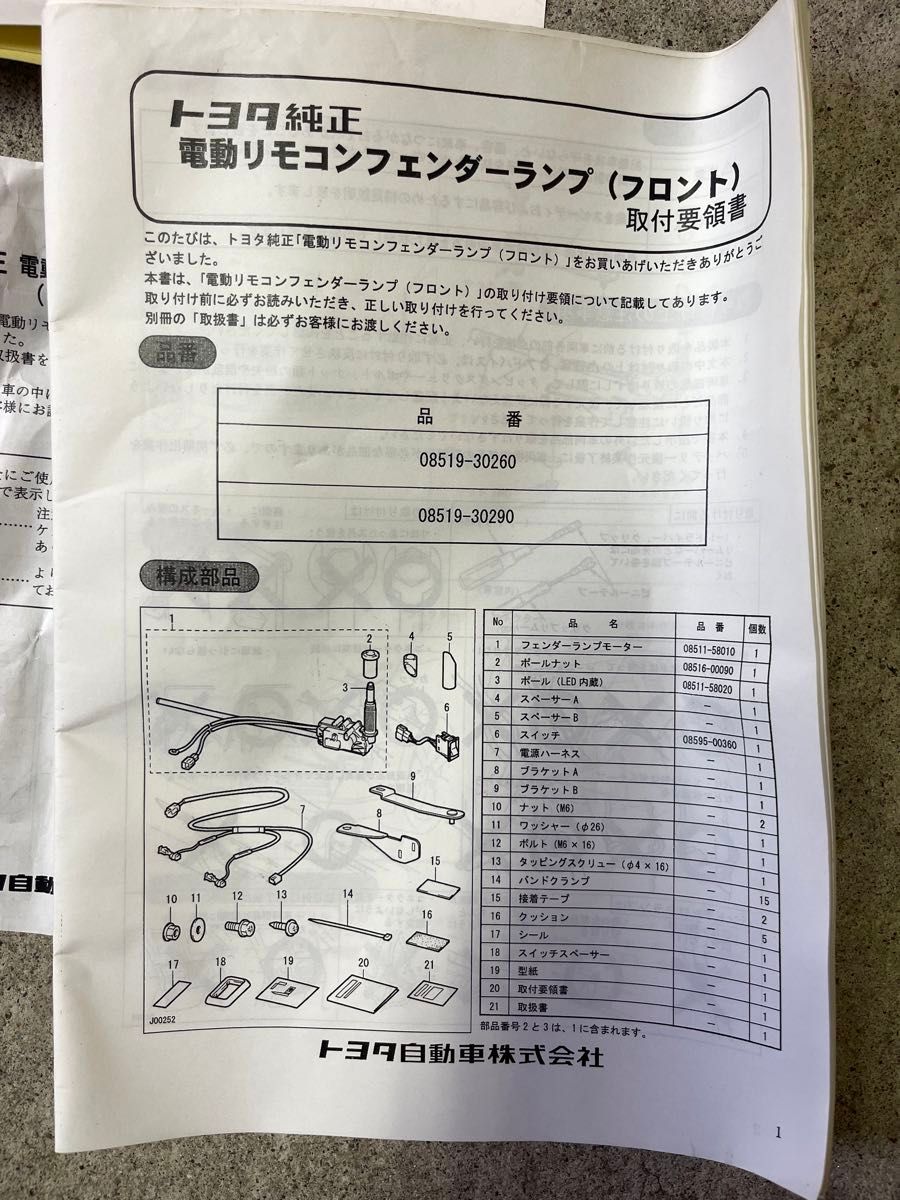 トヨタ純正
電動リモコンフェンダーランプ（フロント）
取付要領書
このたびは、トヨタ純正「電動リモコンフェンダーランプ（フロント）」をお買いあげいただきありがとうご
ざいました。
本書は、「電動リモコンフェンダーランプ（フロント）」の取り付け要領について記載してあります。
取り付け前に必ずお読みいただき、正しい取り付けを行ってください。
別冊の「取扱書」は必ずお客様にお渡しください。
品番
品 番
08519-30260
08519-30290
構成部品
1
2
3
4
5
6
7
8
9
10
11
12
13
14
15
16
17
18
19
20
21
J00252
No 品 名 品 番 個数
1 フェンダーランプモーター 08511-58010 1
2 ポールナット 08516-00090 1
3 ポール（LED内蔵） 08511-58020 1
4 スペーサーA － 1
5 スペーサーB － 1
6 スイッチ 08595-00360 1
7 電源ハーネス － 1
8 ブラケットA － 1
9 ブラケットB － 1
10 ナット（M6） － 2
11 ワッシャー（φ26） － 1
12 ボルト（M6×16） － 1
13 タッピングスクリュー（φ4×16） － 1
14 バンドクランプ － 15
15 接着テープ － 2
16 クッション － 5
17 シール － 1
18 スイッチスペーサー － 1
19 型紙 － 1
20 取付要領書 － 1
21 取扱書 － 1
部品番号2と3は、1に含まれます。
トヨタ自動車株式会社
1